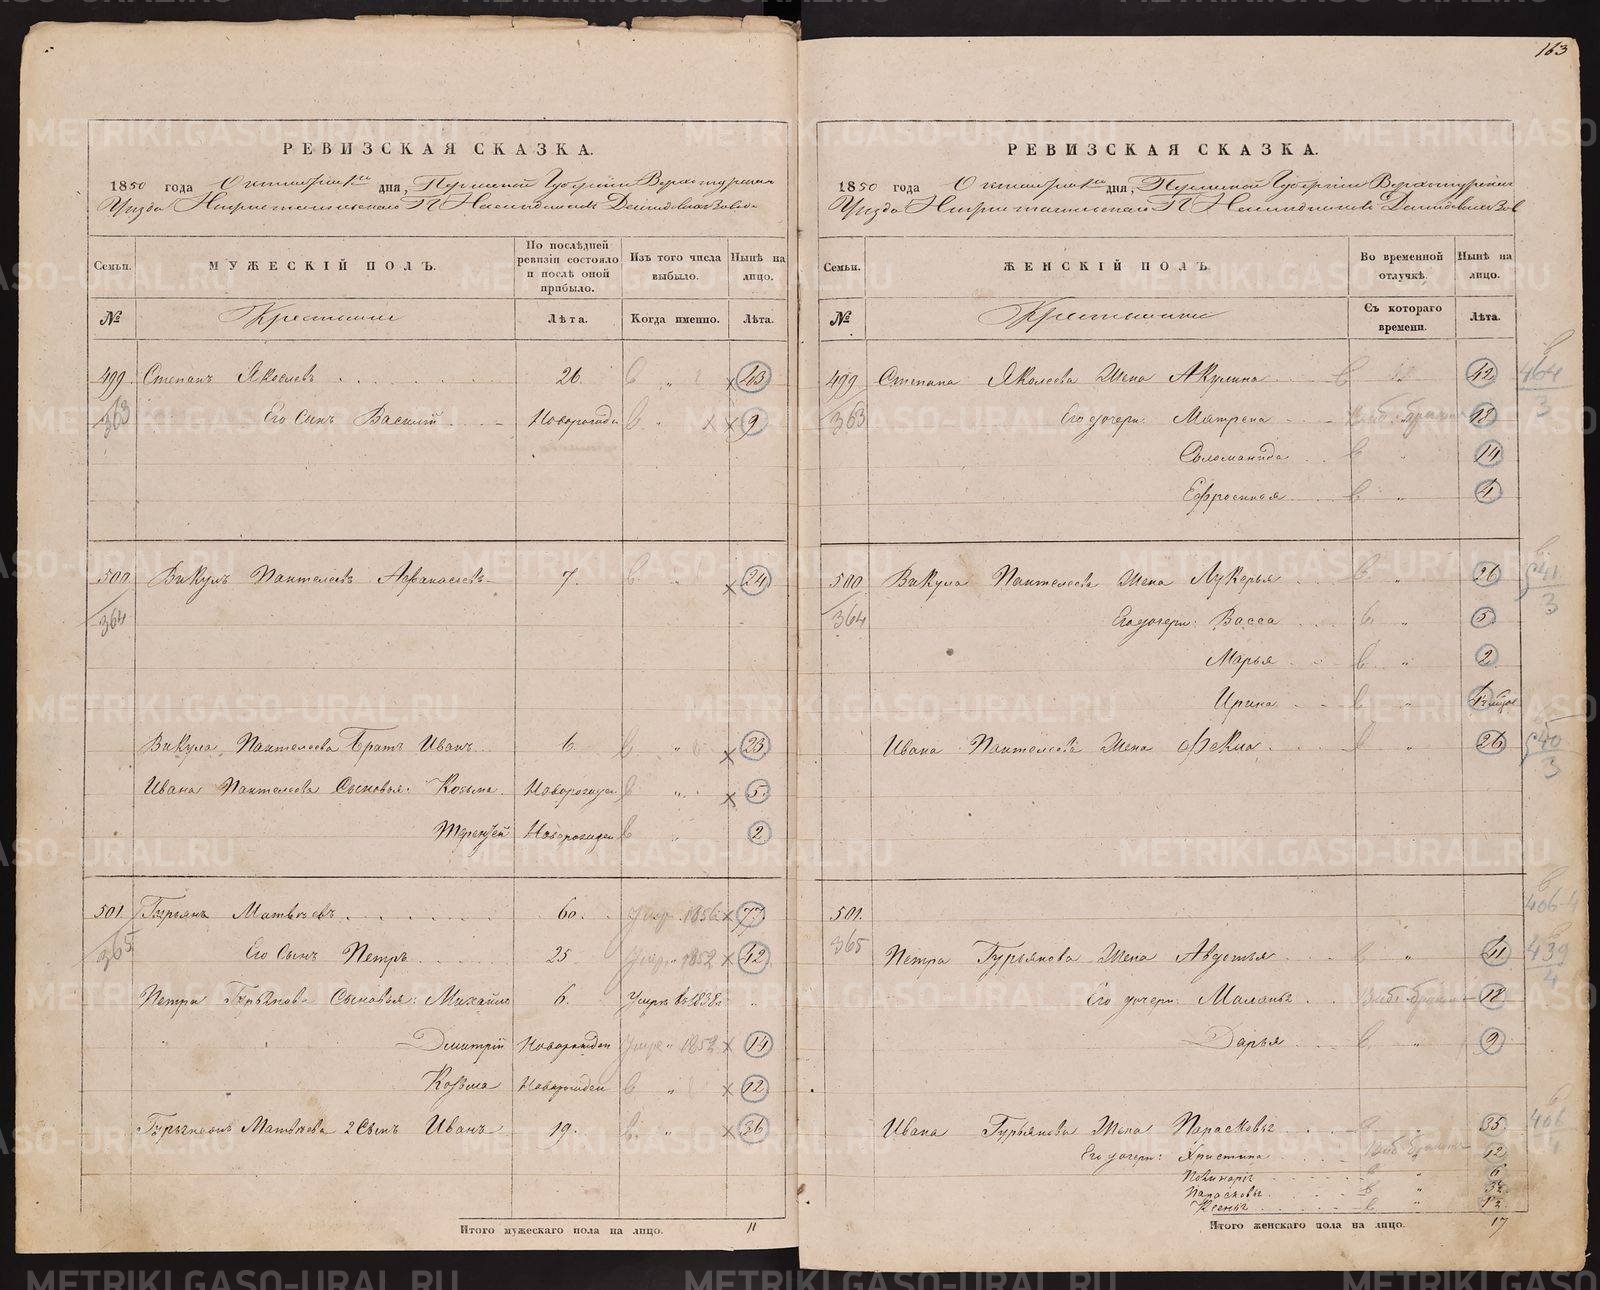 163
РЕВИЗСКАЯ СКАЗКА.
1850 года Октября дня, Пермской Губернии Верхотурскаго
Уезда Нижнетагильскаго Наследников Демидовых Завода
Семьи. МУЖЕСКІЙ ПОЛЪ. По послѣдней ревизіи состояло и послѣ оной прибыло. Изъ того числа выбыло. Нынѣ на лицо.
№ Крестьяне Лѣта. Когда именно. Лѣта.
499. Степанъ Яковлевъ 26. 43
363 Его Сынъ Василій Новорожден 9
500 Викулъ Пантелеевъ Афанасьевъ 7. 24
364
Викула Пантелеева Братъ Иванъ 6. 23
Ивана Пантелеева Сыновья: Козьма Новорожден 5
Терентей Новорожден 2
501. Гурьянъ Матвѣевъ 60. 1856 77
365 Его Сынъ Петръ 25 1852 42
Петра Гурьянова Сыновья: Михайло 6. Умеръ въ 1838г.
Дмитрій Новорожден 1852 14
Козьма Новорожден 12
Гурьяна Матвѣева 2 Сынъ Иванъ 19. 36
Итого мужескаго пола на лицо. 11
РЕВИЗСКАЯ СКАЗКА.
1850 года Октября дня, Пермской Губернии Верхотурскаго
Уезда Нижнетагильскаго Наследников Демидовых Зав
Семьи. ЖЕНСКІЙ ПОЛЪ. Во временной отлучкѣ. Нынѣ на лицо.
№ Крестьянки Съ котораго времени. Лѣта.
499 Степана Яковлева Жена Акулина 42 464
363 Его дочери: Матрена 18 3
Соломанида 14
Ефросинья 4
500 Викула Пантелеева Жена Лукерья 26 41
364 Его дочери: Васса 5 3
Марья 2
Ирина
Ивана Пантелеева Жена Фекла 26 40
3
501. 406-4
365 Петра Гурьянова Жена Авдотья 41 439
Его дочери: Маланья 18 4
Дарья 9
Ивана Гурьянова Жена Парасковья 35 406
Его дочери: Христина 12 4
6
Парасковья
Ксенья
Итого женскаго пола на лицо. 17
METRIKI.GASO-URAL.RU